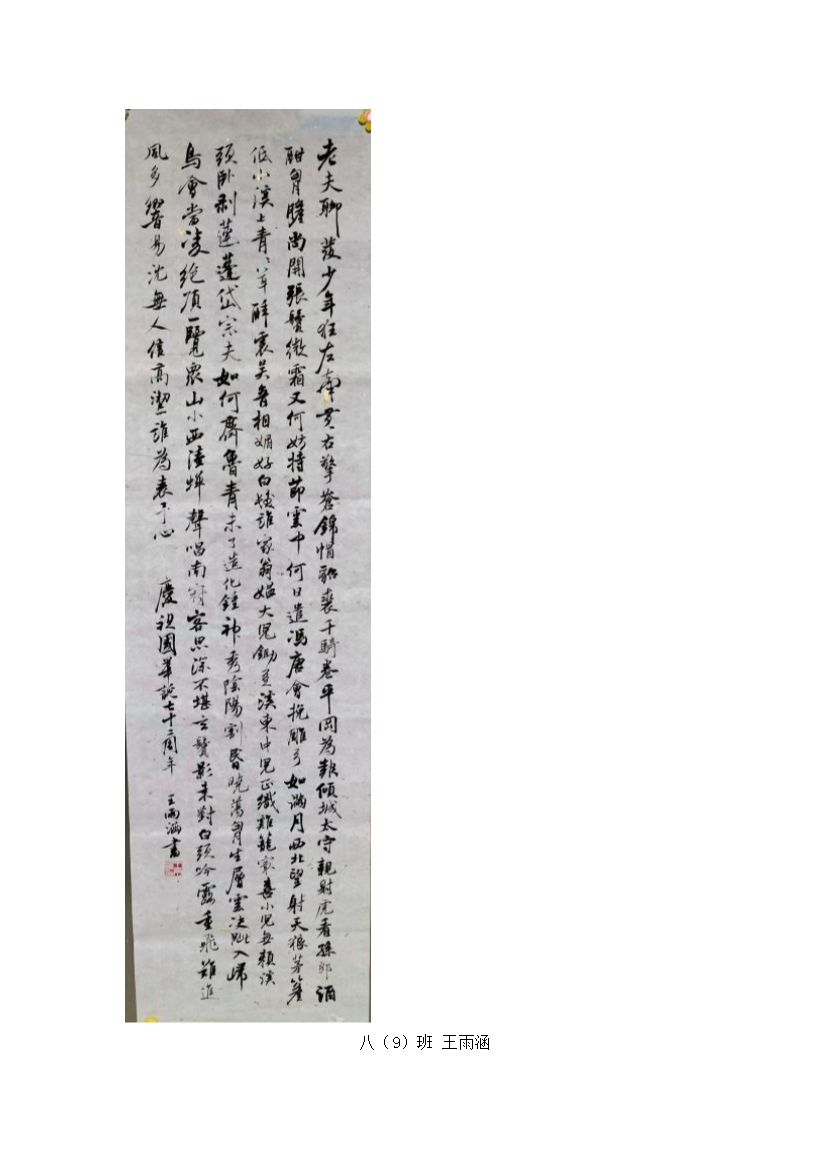 老夫聊發少年狂左牽黃右擎蒼錦帽貂裘千騎卷平岡為報傾城太守親射虎看孫郎酒
酣胷膽尚開張鬢微霜又何妨持節雲中何日遣馮唐會挽雕弓如滿月西北望射天狼茅簷
低小溪上青青草醉裏吳音相媚好白髮誰家翁媼大兒鋤豆溪東中兒正織雞籠最喜小兒無賴溪
頭卧剥蓮蓬岱宗夫如何齊魯青未了造化鍾神秀陰陽割昏曉蕩胷生層雲决眦入歸
鳥會當凌絕頂一覽衆山小西陸蟬聲唱南冠客思深不堪玄鬢影來對白頭吟露重飛難進
風多響易沈無人信高潔誰為表予心
慶祖國華誕七十二周年
王雨涵書
八（9）班 王雨涵